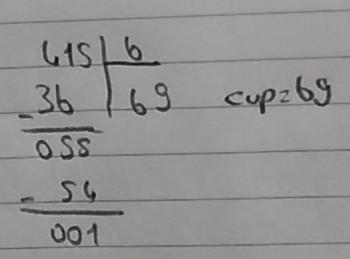 415 6
- 36 69 cup=69
055
- 54
001